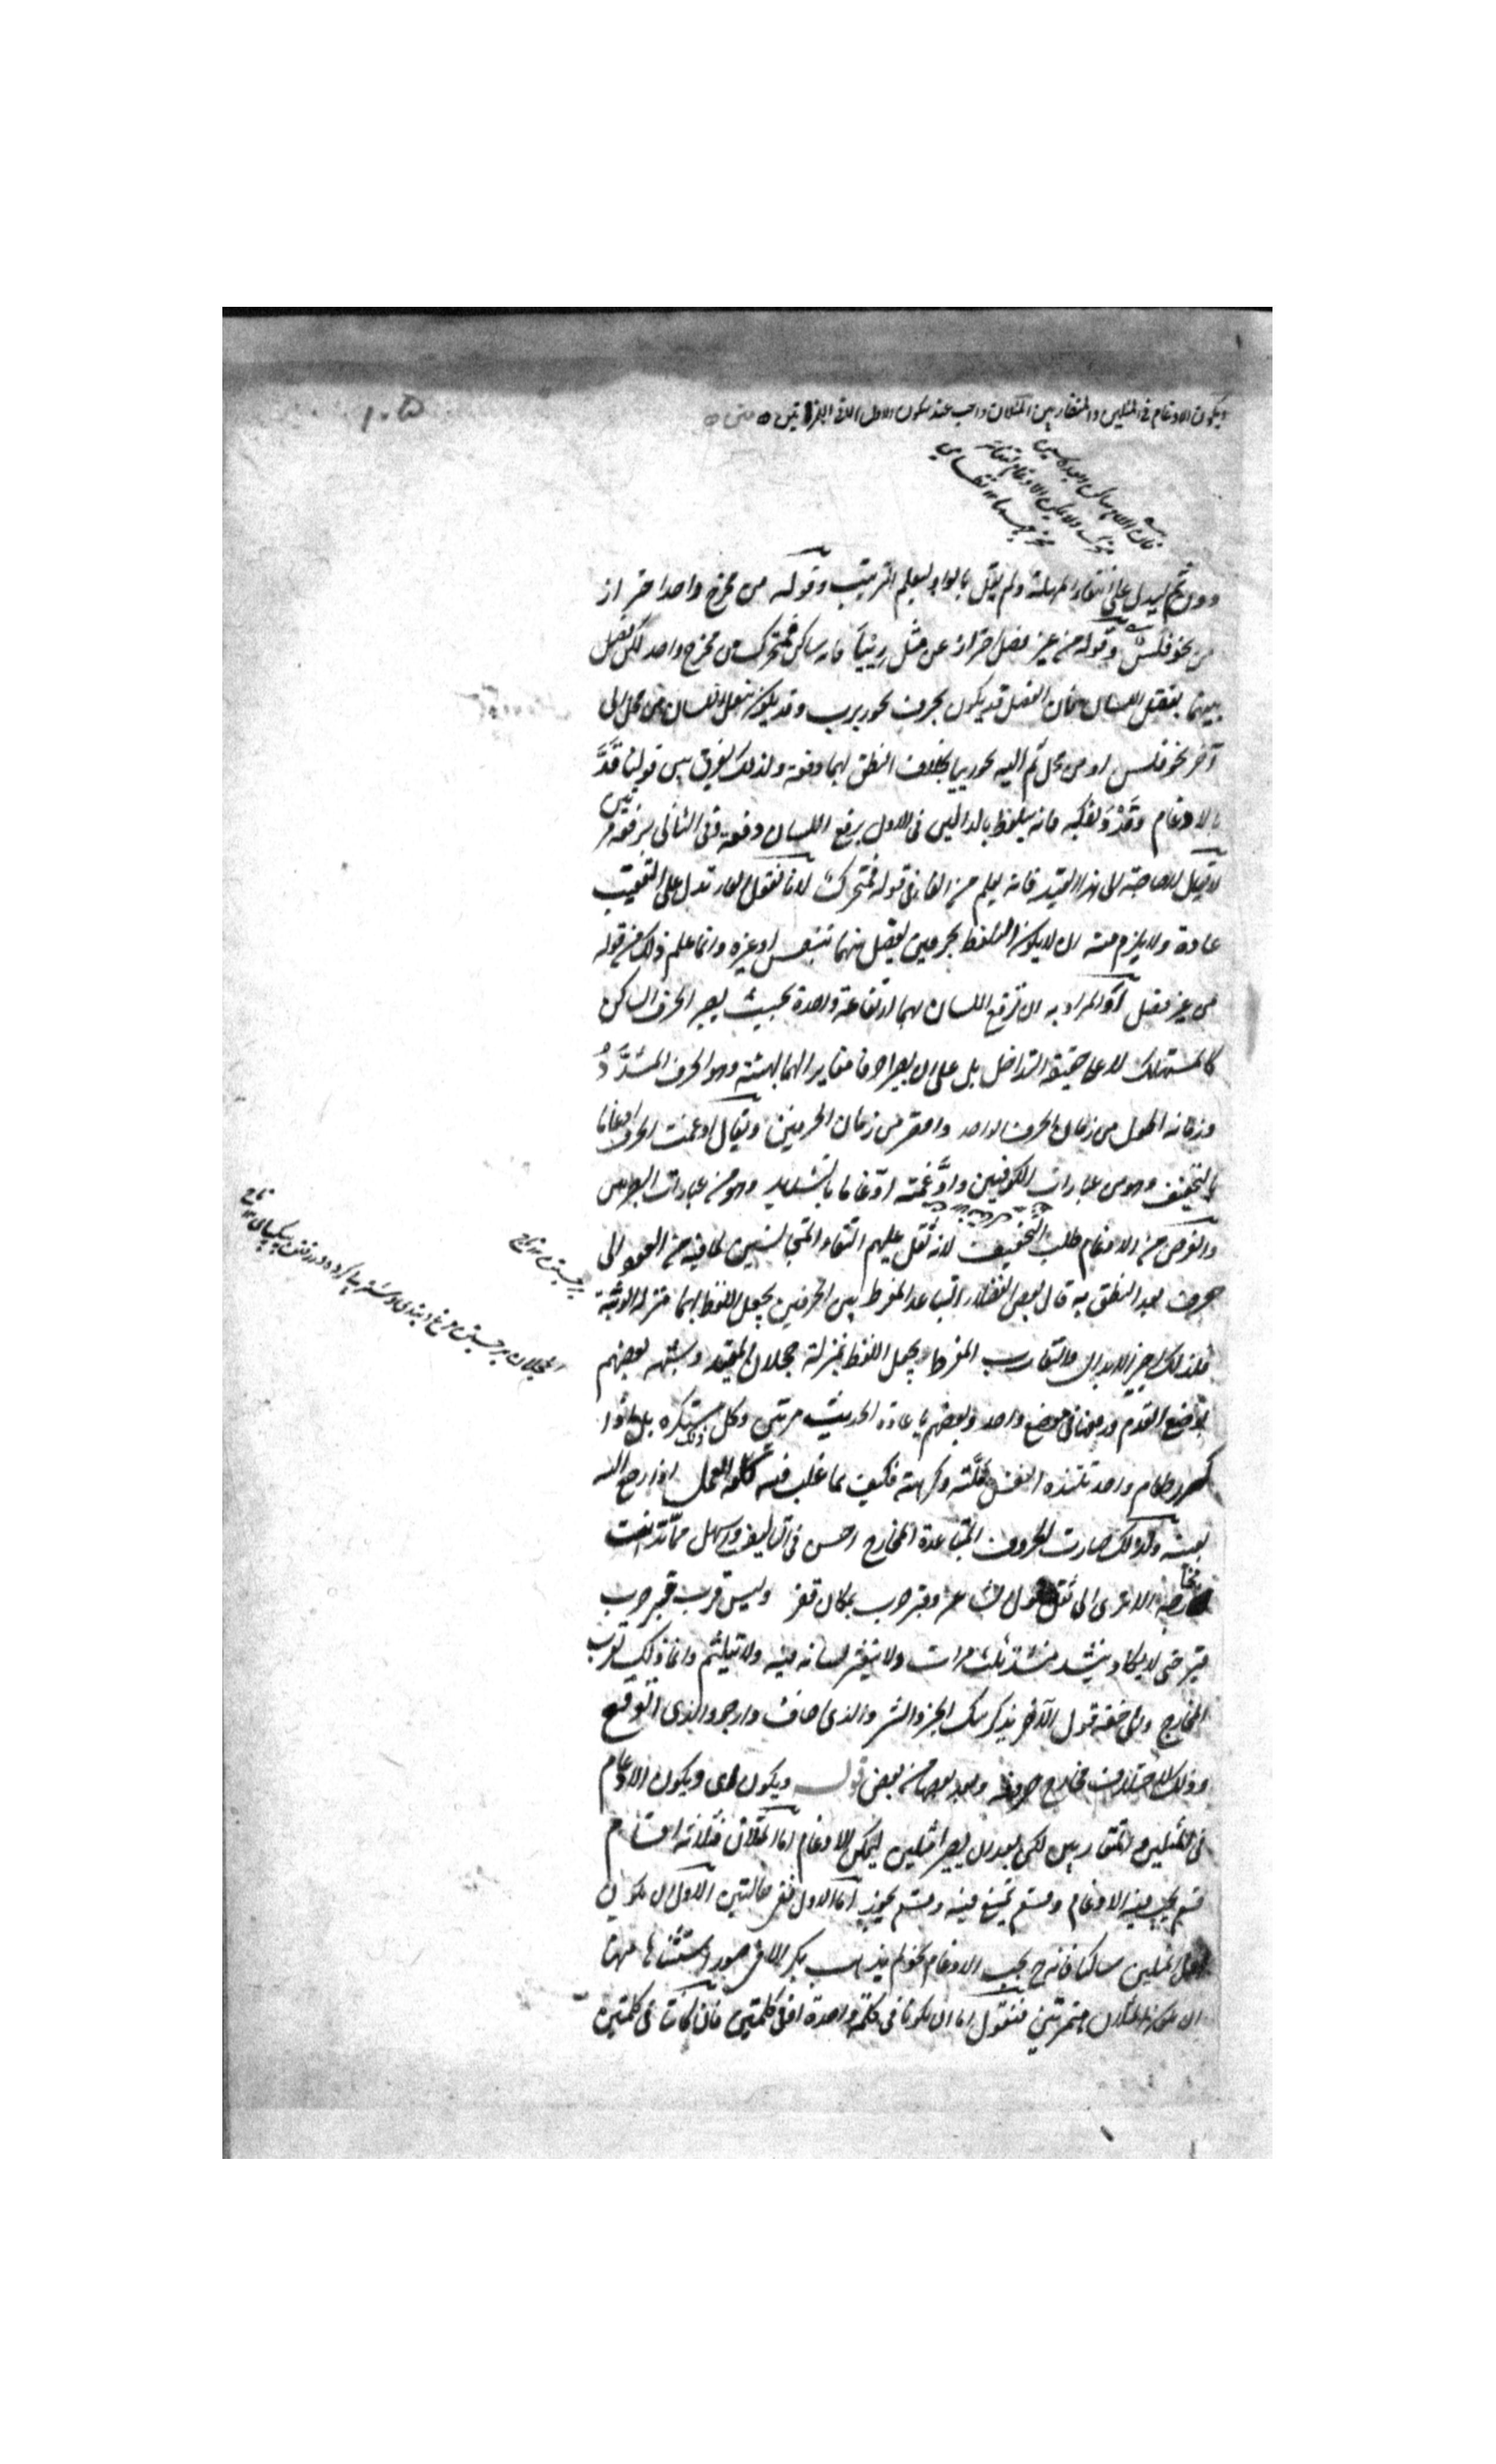 ١٠٥
ويكون الادغام في المثلين والمتقاربين المثلان واجب عند سكون الاول الا في الهمزتين متن
فان اللام ساكن بعده سين
متحرك ولا يمكن الادغام
مخرجيهما
دون ثم ليدل على انتفاء المهلة ولم يقل بالواو ليعلم الترتيب وقوله من مخرج واحد احتراز
من نحو فلس وقوله من غير فصل احتراز عن مثل رييا فانه ساكن فمتحرك من مخرج واحد لكن فصل
بينهما بنقل اللسان فان الفصل قد يكون بحرف نحو ربرب وقد يكون بنقل اللسان من محل الى
آخر نحو فلس او من محل ثم اليه نحو رييا بخلاف النطق بهما دفعة ولذلك يفرق بين قولنا قدّ
بالادغام وقدْدَ بفكه فانه يتلفظ بالدالين في الاول برفع اللسان دفعة وفي الثاني برفعه مرتين
لا يقال لا حاجة الى هذا القيد فانه يعلم من الفاء في قوله فمتحرك لانا نقول الفاء تدل على التعقيب
عادة ولا يلزم منه ان لا يكون التلفظ بحرفين يفصل بينهما بنفس او غيره وانما علم ذلك من قوله
من غير فصل اذ المراد به ان ترفع اللسان بهما ارتفاعة واحدة بحيث يصير الحرف الساكن
كالمستهلك لا على حقيقة التداخل بل على ان يصيرا حرفا مغايرا لهما بهيئة وهو الحرف المشدد
وزمانه اطول من زمان الحرف الواحد واقصر من زمان الحرفين ويقال ادغمت الحرف ادغاما
بالتخفيف وهو من عبارات الكوفيين وادّغمته ادّغاما بالتشديد وهو من عبارات البصريين
والغرض من الادغام طلب التخفيف لانه ثقل عليهم التقاء المتجانسين لما فيه من العود الى
حرف بعد النطق به قال بعض الفضلاء التباعد المفرط بين الحرفين يجعل اللفظ بهما بمنزلة الوثبة
فلذلك اجيز الابدال والتقارب المفرط يجعل اللفظ بمنزلة حجلان المقيد وشبهه بعضهم
بوضع القدم ورفعها في موضع واحد وبعضهم باعادة الحديث مرتين وكل ذلك مستكره بل اذا
كرر طعام واحد تلتذه النفس ملّته وكرهته فكيف بما غلب فيه كلفة العمل اذا رجع اليه
بعينه ولذلك صارت الحروف المتباعدة المخارج احسن في التاليف واسهل مما تدانت
مخارجه الا ترى الى ثقل قول الشاعر وقبر حرب بمكان قفر وليس قرب قبر حرب
قبر حتى لا يكاد ينشد منشد ثلث مرات ولا يتعثر لسانه فيه ولا يتلعثم وانما ذلك لقرب
المخارج والى خفة قول الآخر يذكرنيك الخير والشر والذي اخاف وارجو والذي اتوقع
وذلك لاختلاف مخارج حروفه وبعد بعضها من بعض قوله ويكون اى ويكون الادغام
في المثلين والمتقاربين لكن بعد ان يصيرا مثلين ليمكن الادغام اما المثلان فثلاثة اقسام
قسم يجب فيه الادغام وقسم يمتنع فيه وقسم يجوز اما الاول ففي حالتين الاول ان يكون
اول المثلين ساكنا فانه ح يجب الادغام نحو لم يذهب بكر الا في صور استثناها منها
ان يكون المثلان همزتين فنقول اما ان يكونا في كلمة واحدة او في كلمتين فان كانتا في كلمتين
برجستن تاج
الحجلان برجستن مرغ